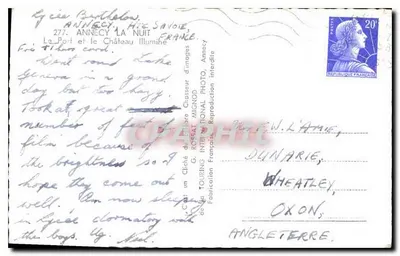 Lycée Berthelon,
ANNECY, Hte SAVOIE,
FRANCE
277. ANNECY LA NUIT
Le Port et le Château Illuminé
For Tibor card
Went round Lake
Geneva in a good
day but too hazy.
Took a great
number of
film because of
the brightness so I
hope they come out
well. Am now sleeping
in lycée dormitory with
the boys. Neil.
20F
POSTES
REPUBLIQUE FRANÇAISE
C'est un Cliché du Maître Chasseur d'Images
G. ROSSAT-MIGNOD
TOURING INTERNATIONAL PHOTO, Annecy
Fabrication Française - Reproduction Interdite
W. L'AMIE,
DUNARIE,
WHEATLEY,
OXON,
ANGLETERRE.